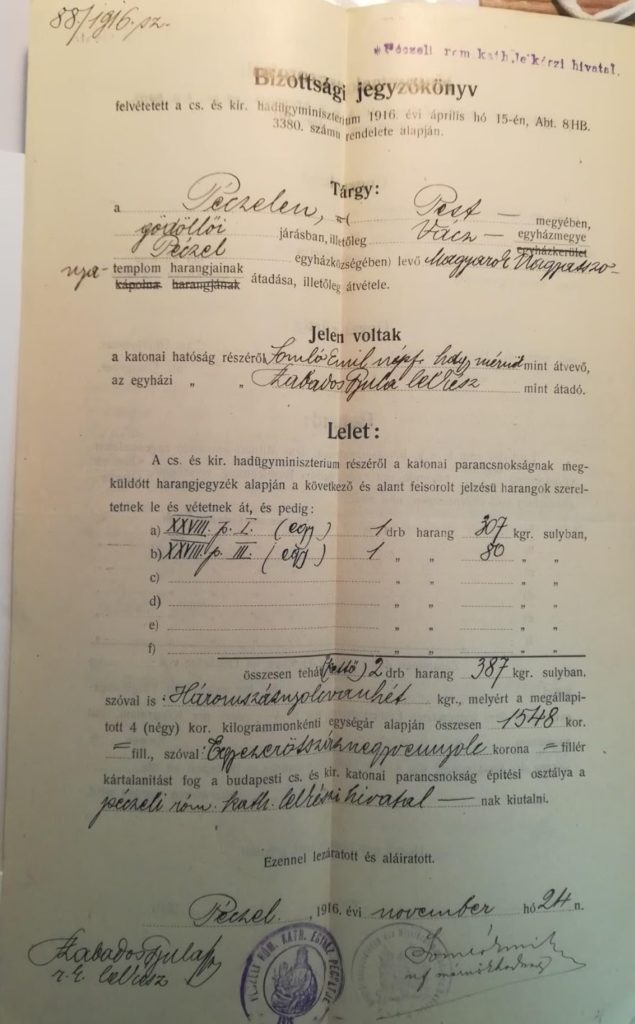 88/1916. sz.
Péczeli róm kath. lelkészi hivatal.
Bizottsági jegyzőkönyv
felvétetett a cs. és kir. hadügyminiszterium 1916. évi április hó 15-én, Abt. 8HB.
3380. számu rendelete alapján.
Tárgy:
a Péczelen, Pest — megyében,
gödöllői járásban, illetőleg Vácz — egyházmegye
egyházkerület
Péczel egyházközségében) levő Magyarok Nagyasszo-
nya- templom harangjainak
kápolna harangjának átadása, illetőleg átvétele.
Jelen voltak
a katonai hatóság részéről Somló Emil népf. mérnök mint átvevő,
az egyházi „ „ Szabados Gyula lelkész mint átadó.
Lelet:
A cs. és kir. hadügyminiszterium részéről a katonai parancsnokságnak meg-
küldött harangjegyzék alapján a következő és alant felsorolt jelzésü harangok szerel-
tetnek le és vétetnek át, és pedig:
a) XXVIII. p. I. (egy) 1 drb harang 307 kgr. sulyban,
b) XXVIII. p. III. (egy) 1 „ „ 80 „ „
c) „ „ „ „
d) „ „ „ „
e) „ „ „ „
f) „ „ „ „
összesen tehát (kettő) 2 drb harang 387 kgr. sulyban.
szóval is: Háromszáznyolcvanhét kgr., melyért a megállapi-
tott 4 (négy) kor. kilogrammonkénti egységár alapján összesen 1548 kor.
= fill., szóval: Egyezerötszáznegyvennyolc korona = fillér
kártalanitást fog a budapesti cs. és kir. katonai parancsnokság épitési osztálya a
péczeli róm. kath. lelkészi hivatal — nak kiutalni.
Ezennel lezáratott és aláiratott.
Péczel, 1916. évi november hó 24 n.
Szabados Gyula
r. k. lelkész
Somló Emil